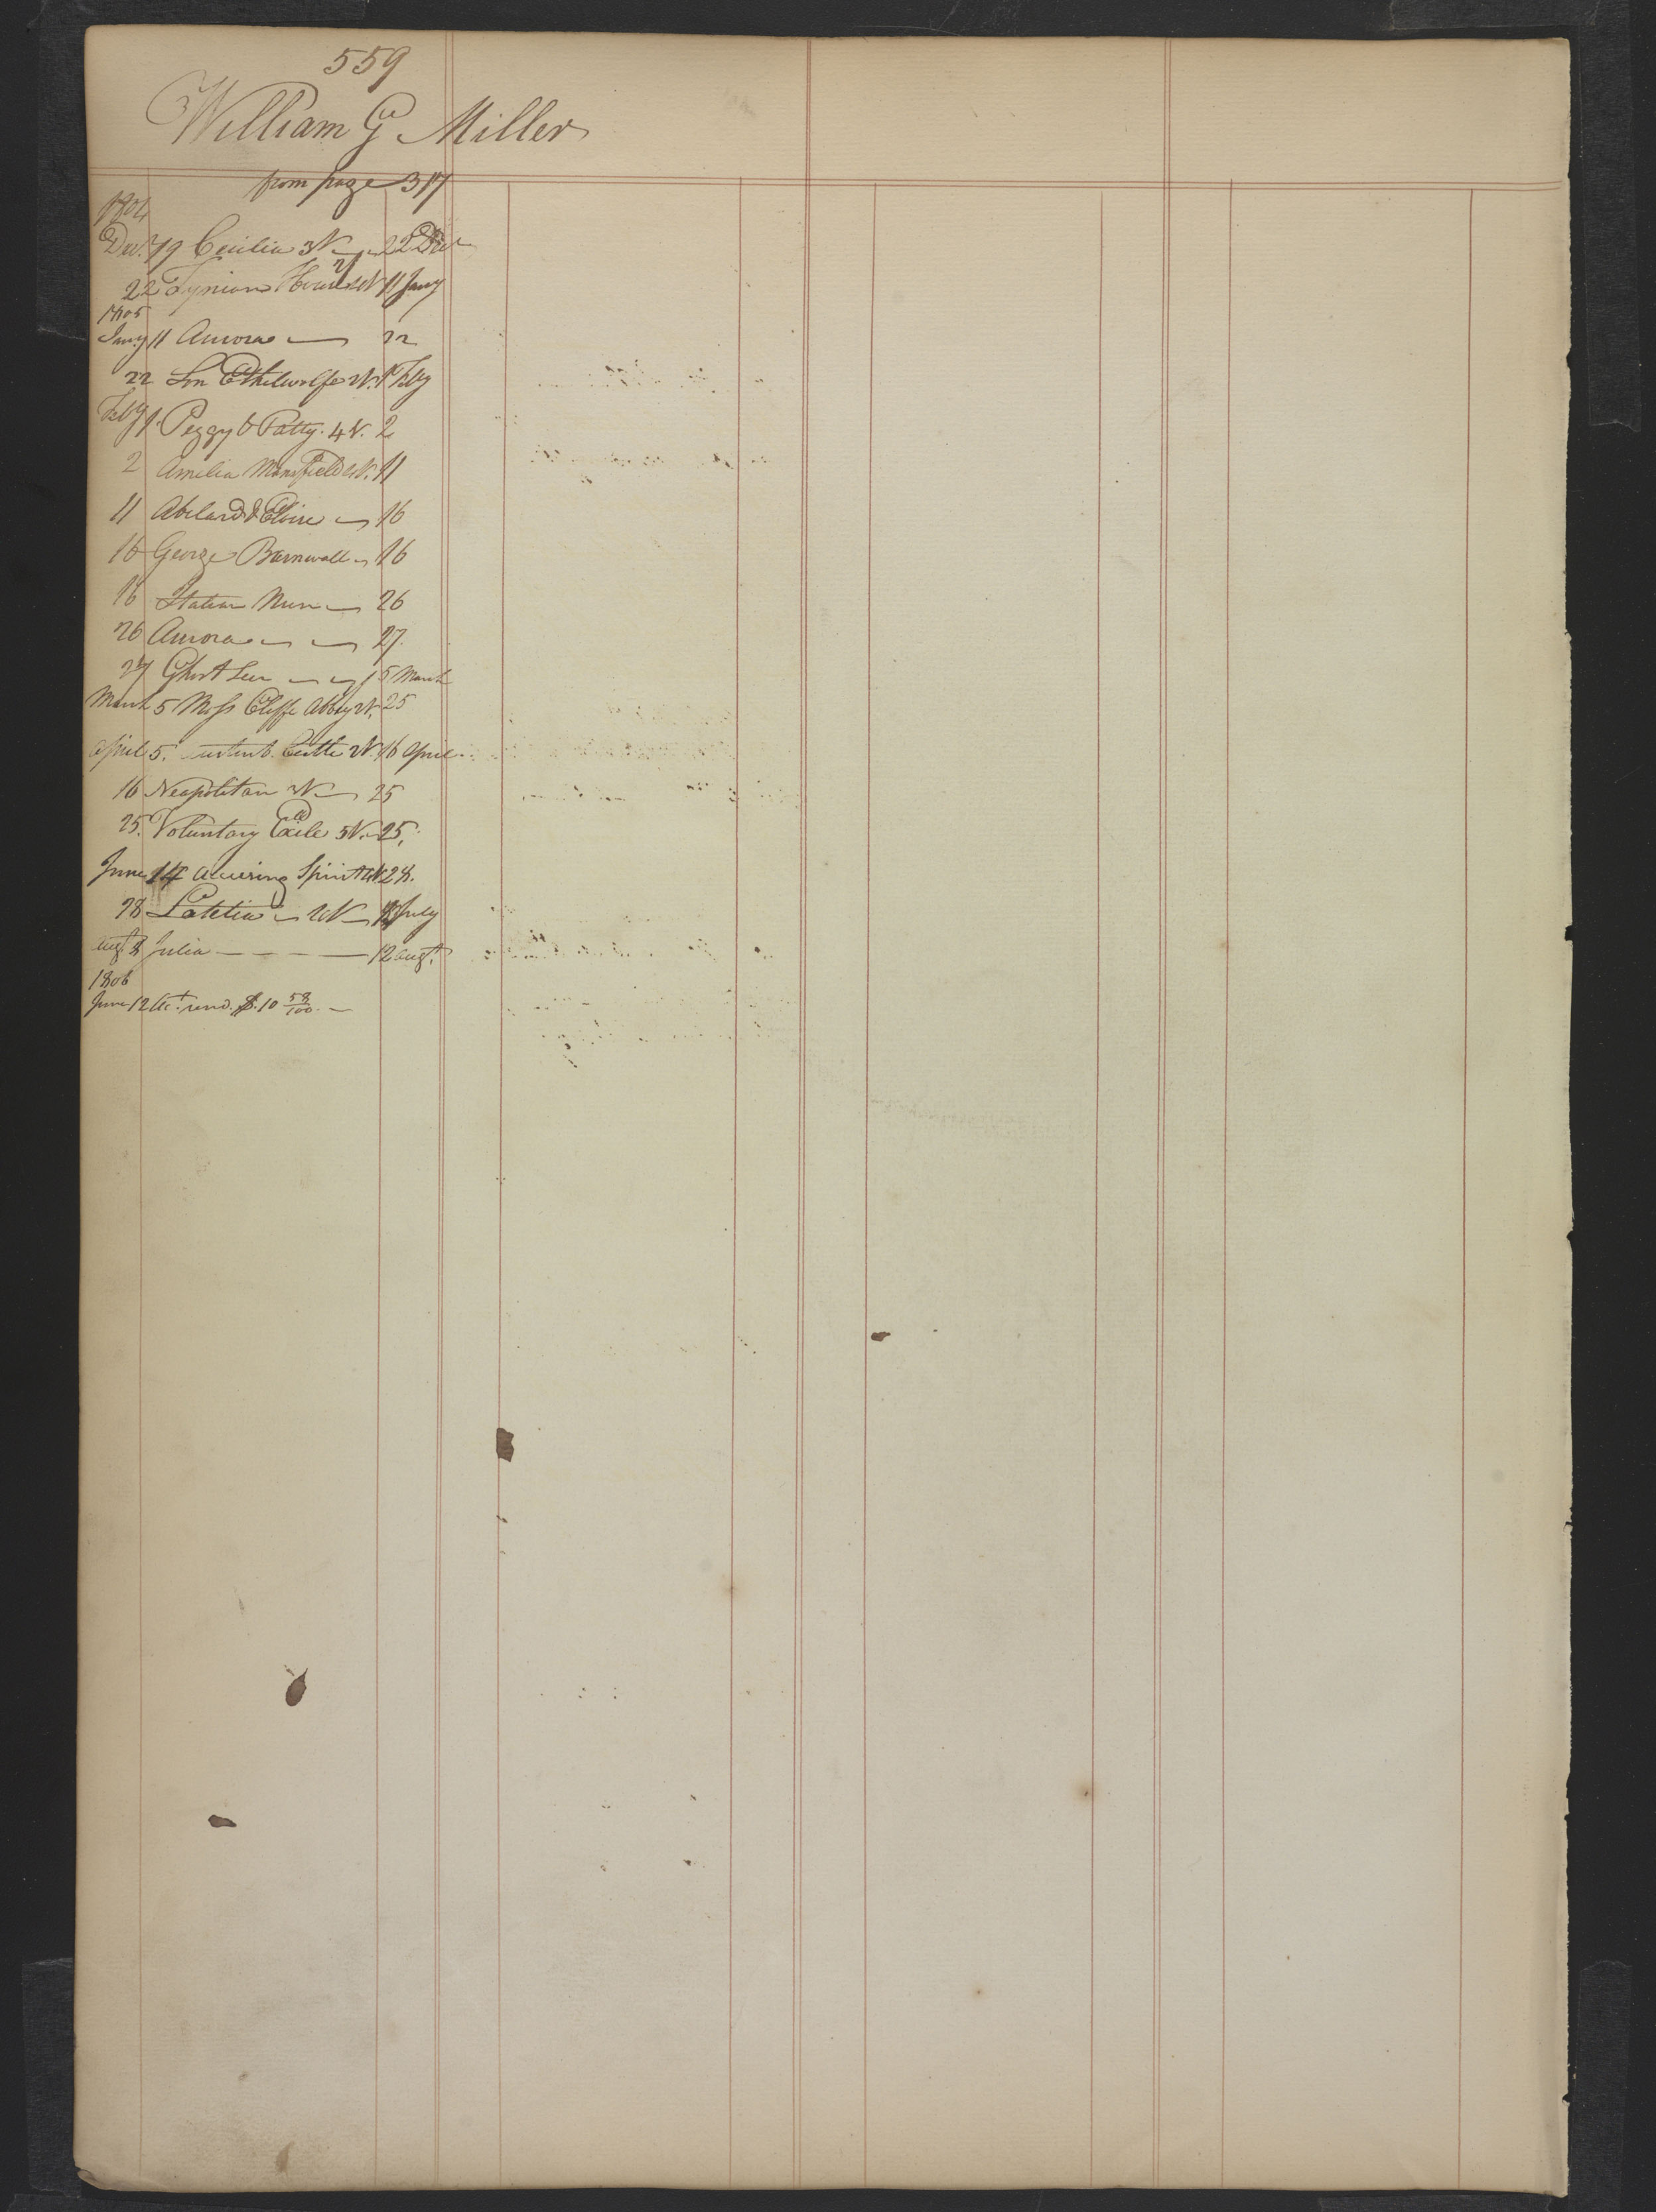 559
William G Miller
from page 317
1804
Dec. 19 Cecilia 3 V 22 Dec
22 Tynian 2 V 11 Jany
1805
Jany 11 Aurora 22
22 Son Ethelwolfe 2 V. 1 Feby
Feby 1. Peggy & Patty. 4 V. 2
2 Amelia Mansfield 2 V. 11
11 Abelard & Eloise 16
16 George Barnwall 16
16 Italian Nun 26
26 Aurora 27.
27 Ghost Seer 5 March
March 5 Moss Cliffe Abbey V. 25
April 5. Castle 2 V. 16 April
16 Neapolitan 3 V 25
25. Voluntary Exile 5 V. 25.
June 14 Accusing Spirit 4 V 28.
28 Letetia 2 V July
Augt 8 Julia 12 Augt.
1806
June 12 Act. rend. $. 10 58/100.